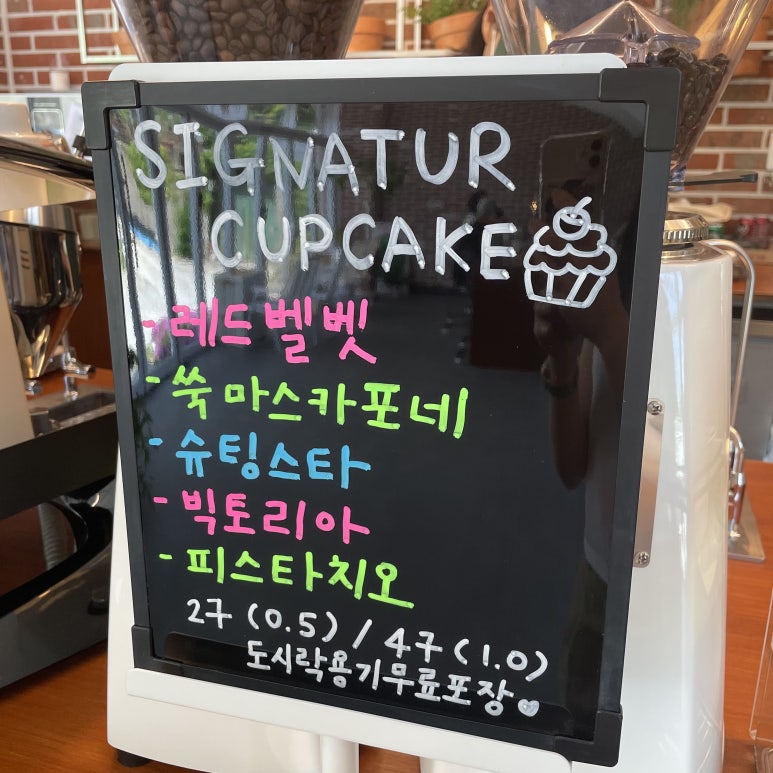 SIGNATUR
CUPCAKE
- 레드벨벳
- 쑥마스카포네
- 슈팅스타
- 빅토리아
- 피스타치오
2구 (0.5) / 4구 (1.0)
도시락용기무료포장♡